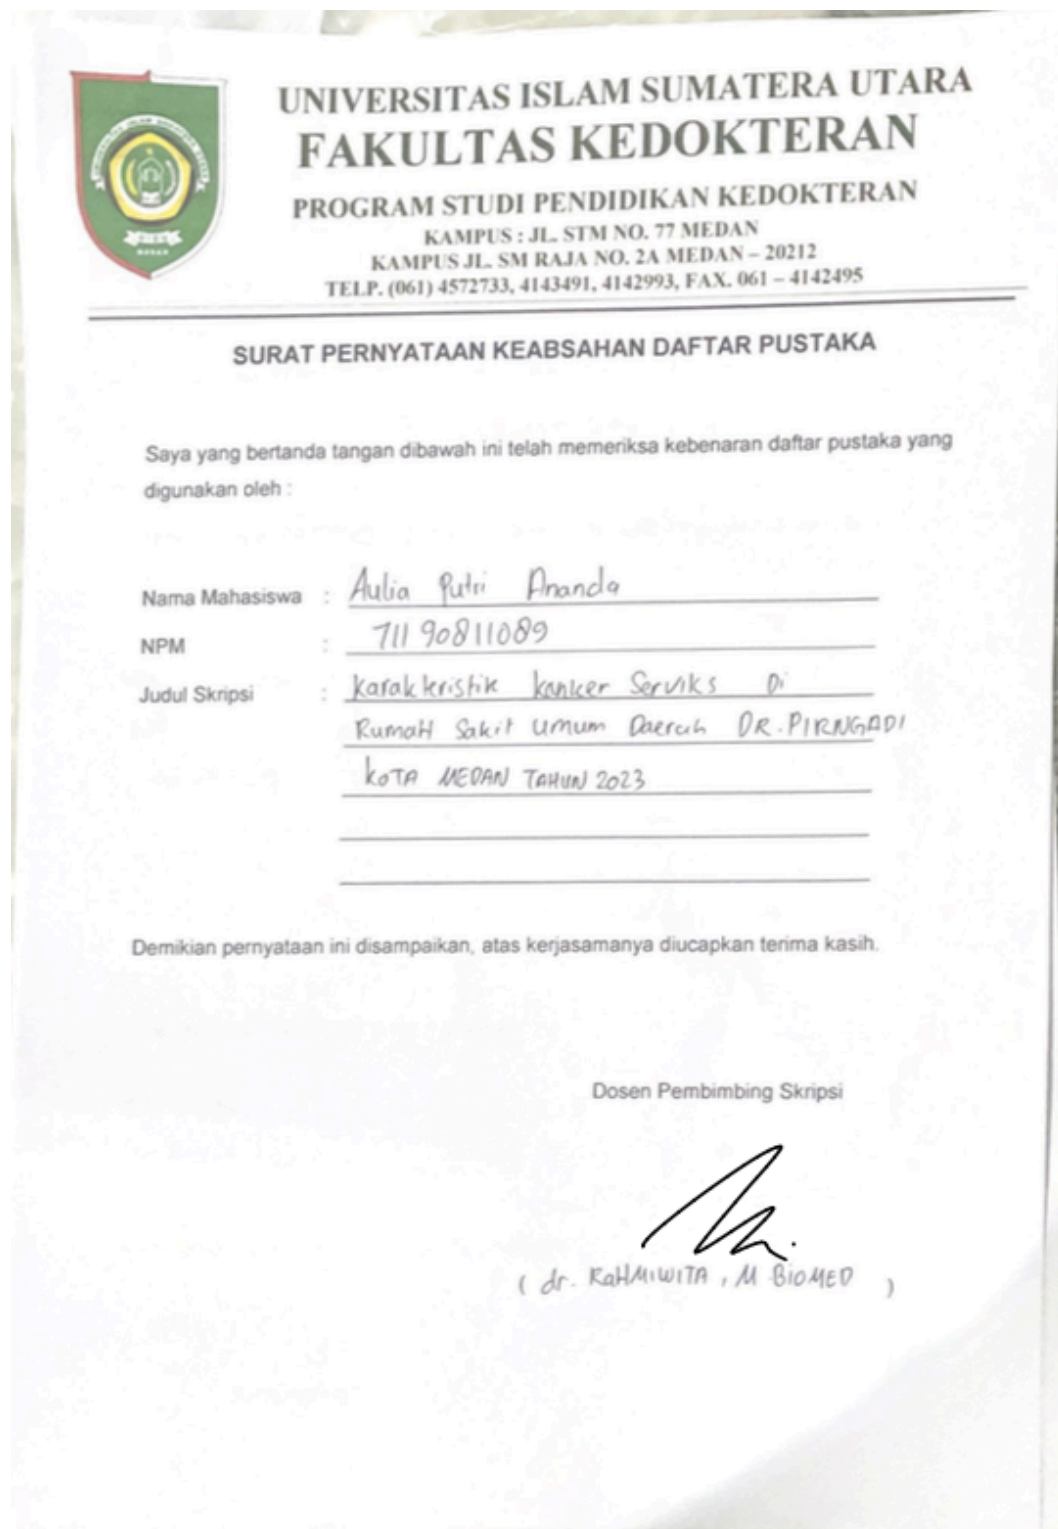 UNIVERSITAS ISLAM SUMATERA UTARA
FAKULTAS KEDOKTERAN
PROGRAM STUDI PENDIDIKAN KEDOKTERAN
KAMPUS : JL. STM NO. 77 MEDAN
KAMPUS JL. SM RAJA NO. 2A MEDAN – 20212
TELP. (061) 4572733, 4143491, 4142993, FAX. 061 – 4142495
SURAT PERNYATAAN KEABSAHAN DAFTAR PUSTAKA
Saya yang bertanda tangan dibawah ini telah memeriksa kebenaran daftar pustaka yang
digunakan oleh :
Nama Mahasiswa : Aulia Putri Ananda
NPM : 71190811089
Judul Skripsi : Karakteristik kanker Serviks Di
RumaH Sakit Umum Daerah DR. PIRNGADI
KOTA MEDAN TAHUN 2023
Demikian pernyataan ini disampaikan, atas kerjasamanya diucapkan terima kasih.
Dosen Pembimbing Skripsi
( dr. RaHMIWITA , M BIOMED )